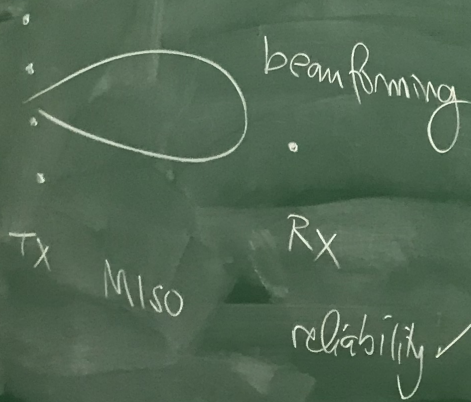 beamforming
Rx
Tx
MISO
reliability ✓